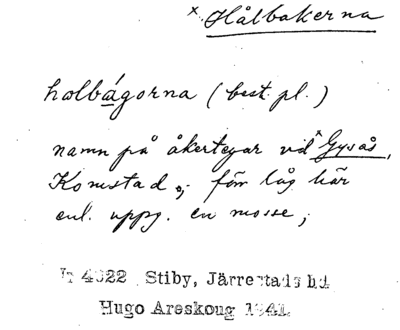 × Hålbakerna
holbágorna (best. pl.)
namn på åkertegar vid × Gysås,
Komstad; förr låg här
enl. uppg. en mosse;
4022 Stiby, Järrestads hd
Hugo Areskoug 1941.